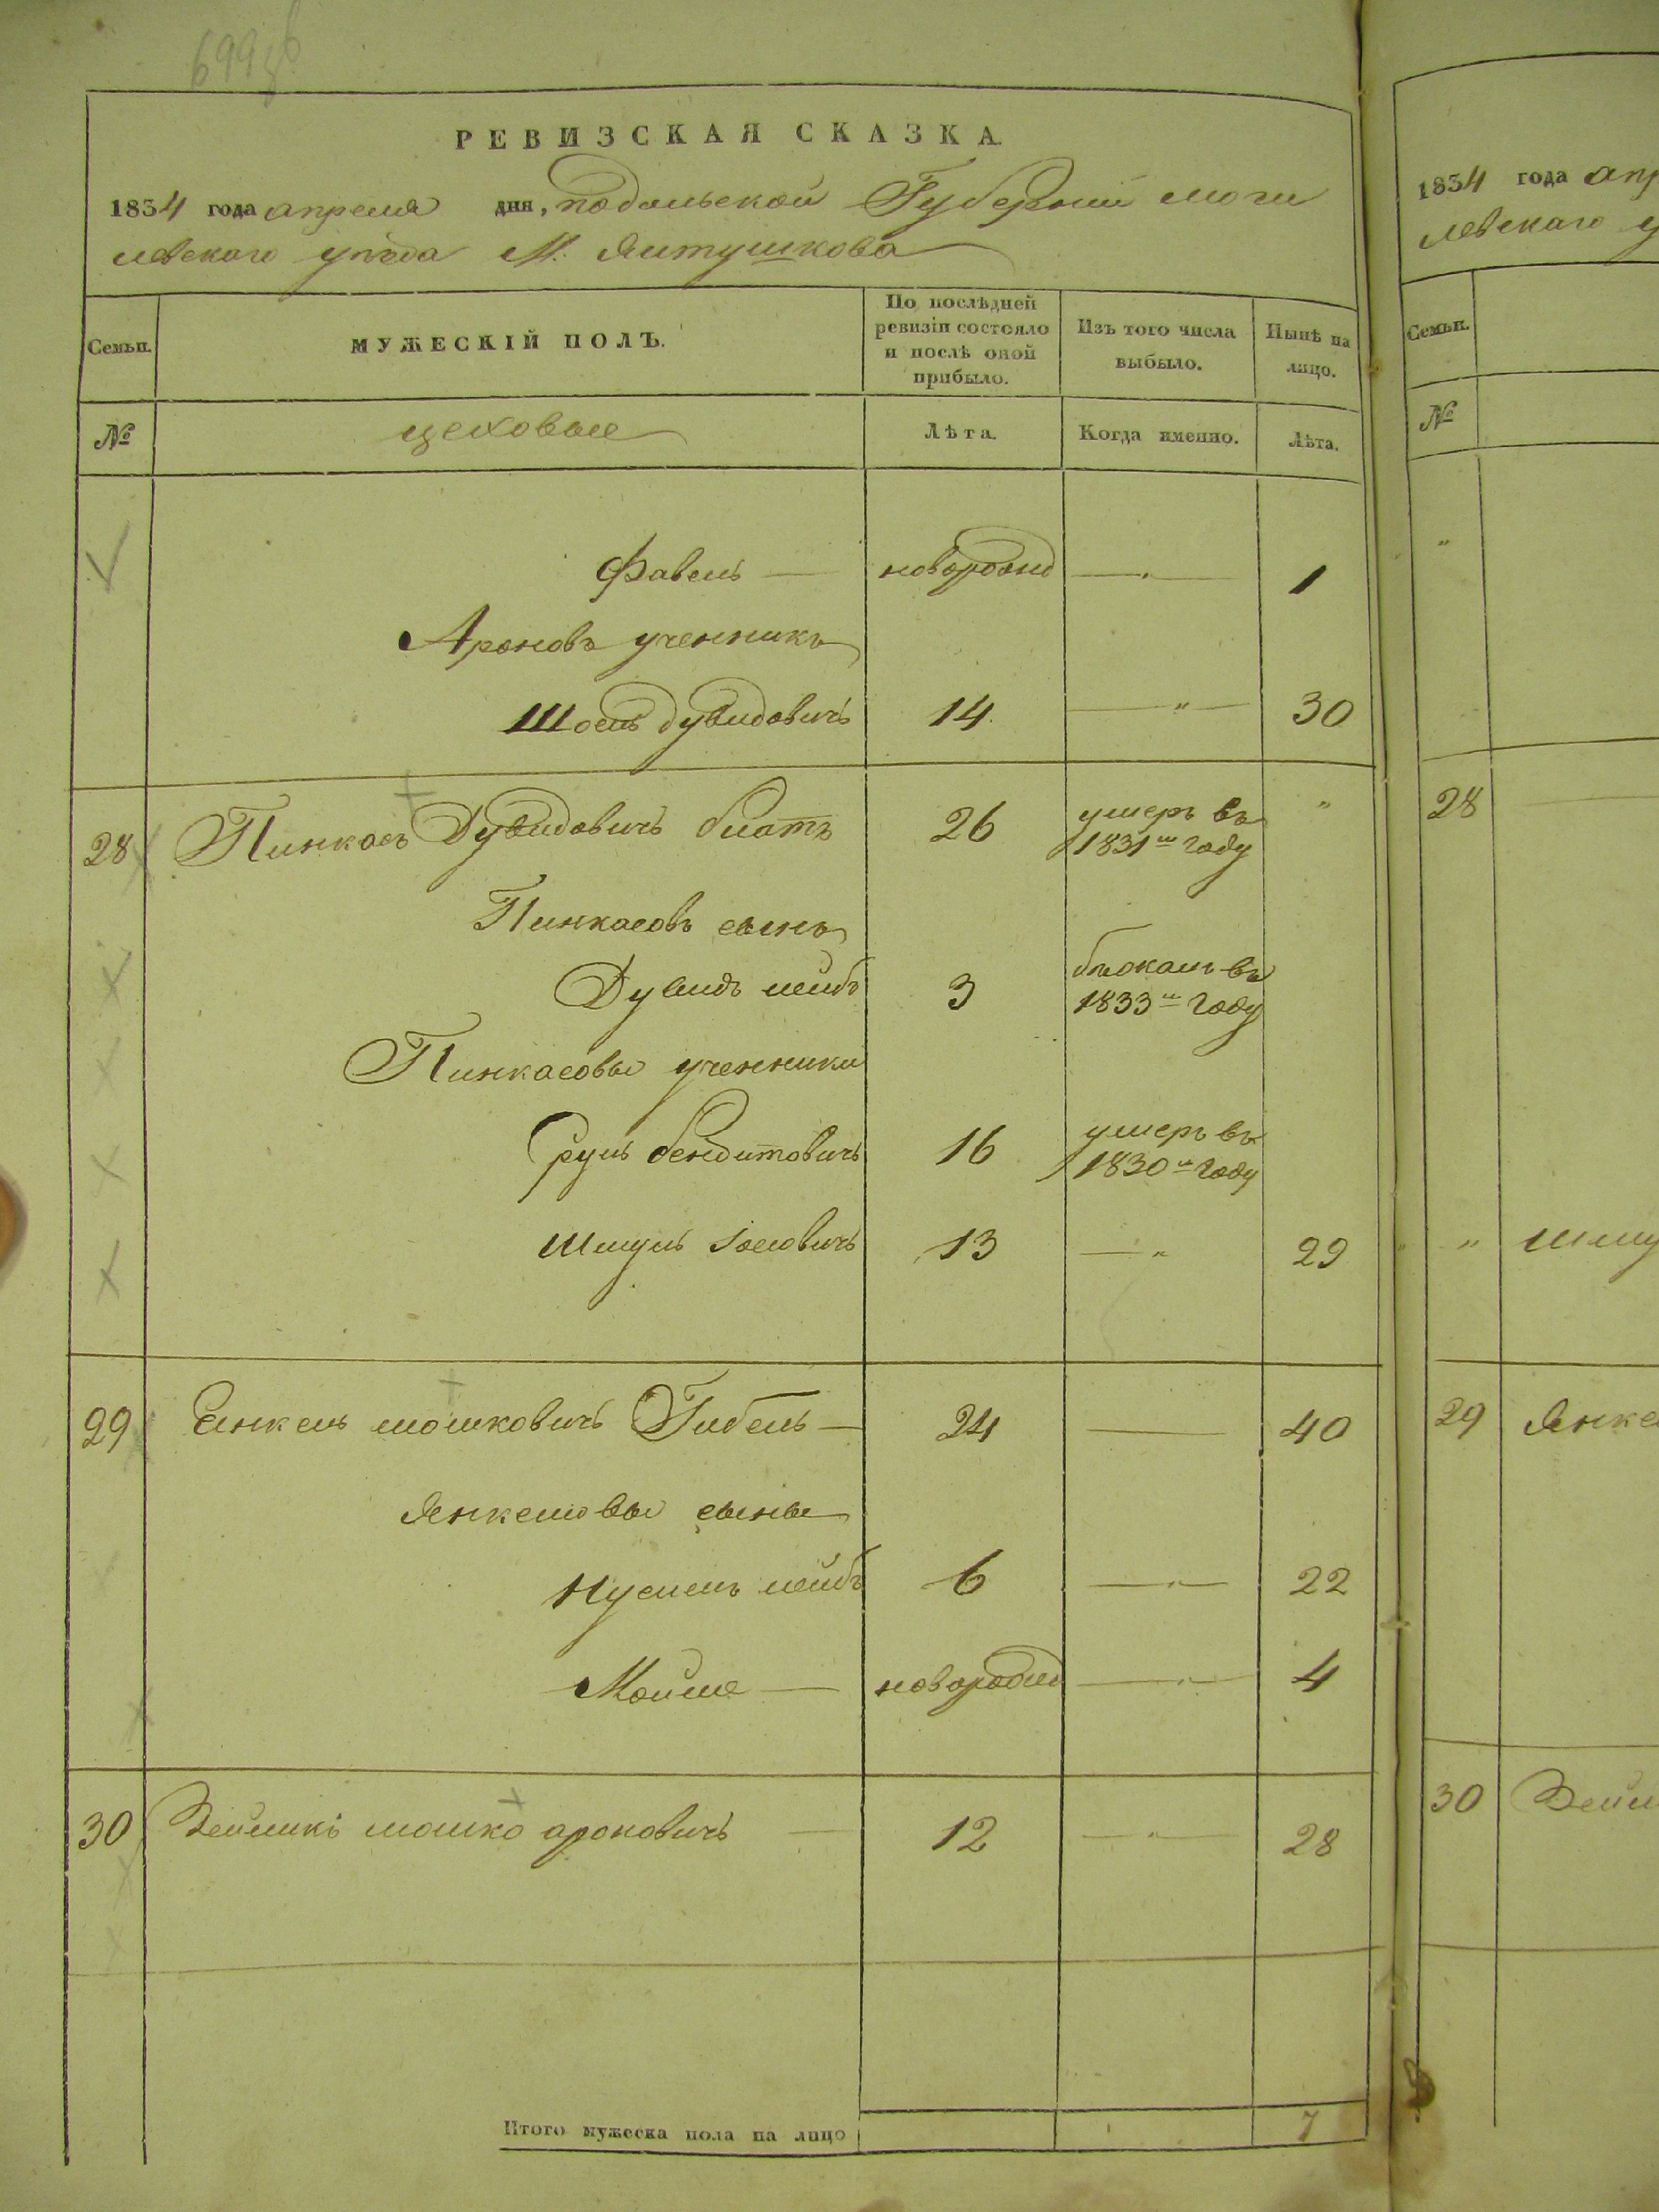 РЕВИЗСКАЯ СКАЗКА.
1834 года апреля дня, подольской Губернии моги
левскаго уезда М. Ялтушкова
Семьи.
МУЖЕСКІЙ ПОЛЪ.
По послѣдней ревизіи состояло и послѣ оной прибыло.
Изъ того числа выбыло.
Нынѣ на лицо.
№
цеховые
Лѣта.
Когда именно.
Лѣта.
Фавель — новорожд — " — 1
Ароновъ ученникъ
Шоель дувидовичъ 14. — " — 30
28 Пинкасъ Дувидовичъ блатъ 26 умеръ въ 1831м году "
Пинкасовъ сынъ
Дувидъ лейбъ 3 въ 1833м году
Пинкасовы ученники
Сруль бендитовичъ 16 умеръ въ 1830м году
Шмуль Іоеловичъ 13 — " 29
29 Янкель мошковичъ Гибель — 24 — 40
Янкелювы сыны
Нусменъ лейбъ 6 — " — 22
Мойше — новорожд — " — 4
30 мошко ароновичъ — 12 — " — 28
Итого мужеска пола на лицо 7
1834 года апр
левскаго у
Семьи.
№
"
28
" Шму
29 Янке
30